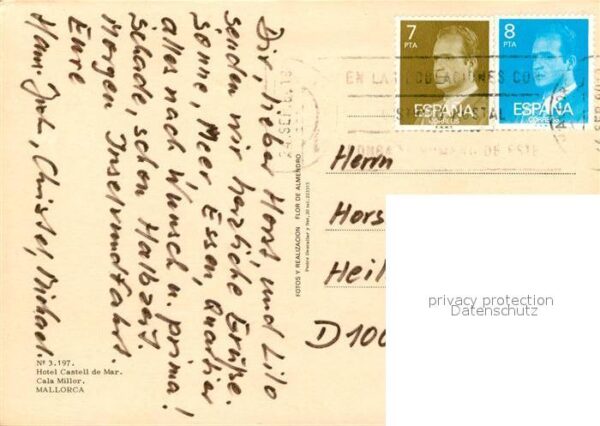 Dir, lieber Horst, und Lilo
senden wir herzliche Grüße.
Sonne, Meer, Essen, Quartier
alles nach Wunsch u. prima!
Schade, schon Halbzeit.
Morgen Inselrundfahrt.
Eure
Christel, Michael.
Nº 3.197.
Hotel Castell de Mar.
Cala Miller.
MALLORCA
FOTOS Y REALIZACION FLOR DE ALMENDRO
7
PTA
ESPAÑA
CORREOS
8
PTA
ESPAÑA
CORREOS
SEP
Herrn
Hors
Heil
D 100
privacy protection
Datenschutz